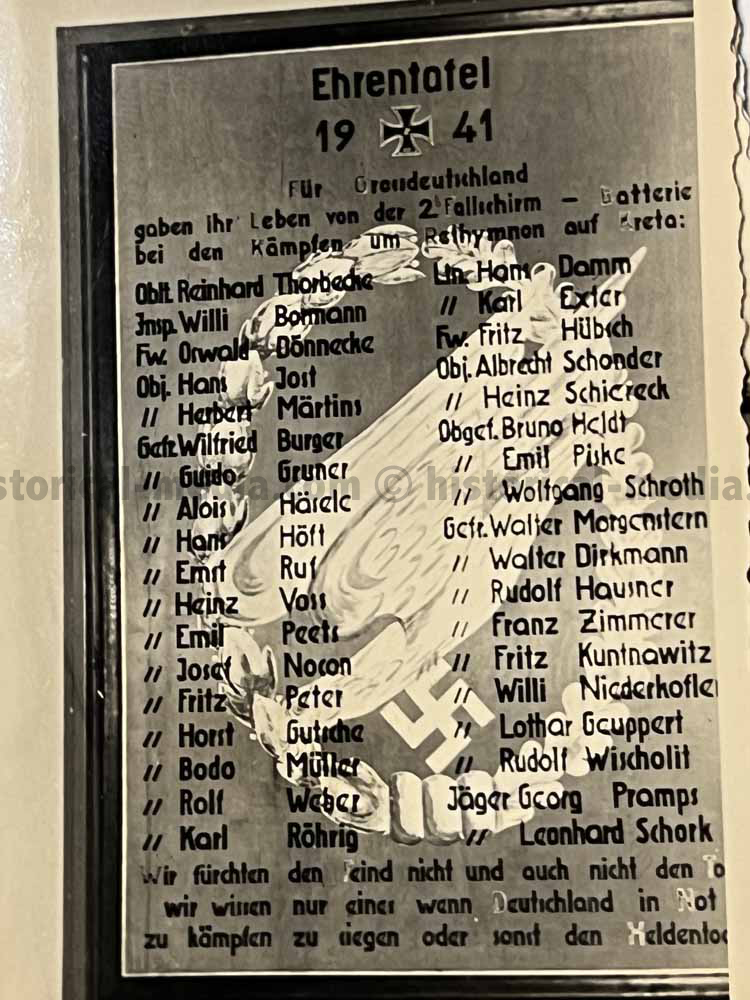 Ehrentafel
19 41
Für Grossdeutschland
gaben ihr Leben von der 2. Fallschirm – Batterie
bei den Kämpfen um Rethymnon auf Kreta:
Oblt. Reinhard Thorbecke
Insp. Willi Bormann
Fw. Oswald Dönnecke
Obj. Hans Jost
〃 Herbert Märtins
Gefr. Wilfried Burger
〃 Guido Gruner
〃 Alois Härele
〃 Hans Höft
〃 Ernst Ruf
〃 Heinz Voss
〃 Emil Peets
〃 Josef Nocon
〃 Fritz Peter
〃 Horst Gutsche
〃 Bodo Müller
〃 Rolf Weber
〃 Karl Röhrig
Ltn. Hans Damm
〃 Karl Exter
Fw. Fritz Hübsch
Obj. Albrecht Schonder
〃 Heinz Schiereck
Obgef. Bruno Heldt
〃 Emil Piske
〃 Wolfgang Schroth
Gefr. Walter Morgenstern
〃 Walter Dirkmann
〃 Rudolf Hausner
〃 Franz Zimmerer
〃 Fritz Kuntnawitz
〃 Willi Niederhofle
〃 Lothar Geuppert
〃 Rudolf Wischolit
Jäger Georg Pramps
〃 Leonhard Schork
Wir fürchten den Feind nicht und auch nicht den To
wir wissen nur eines wenn Deutschland in Not
zu kämpfen zu siegen oder sonst den Heldentod